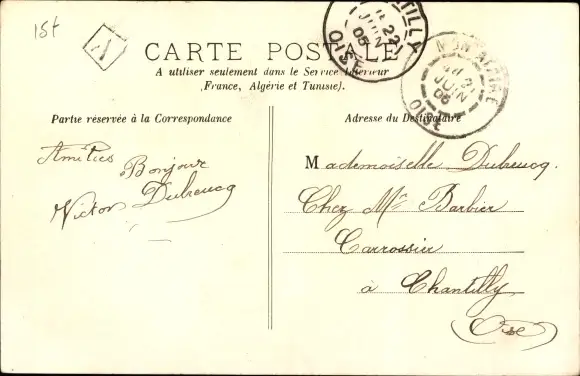 15t
A
CARTE POSTALE
A utiliser seulement dans le Service Intérieur
(France, Algérie et Tunisie).
TILLY
22
JUIN
05
OISE
MONTATAIRE
21
JUIN
05
OISE
Partie réservée à la Correspondance
Adresse du Destinataire
Amitiés
Bonjour
Victor Dubrucq
Mademoiselle Dubrucq.
Chez Mr Barbier
Carrossier
à Chantilly
(Oise)